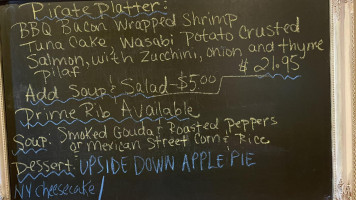 Pirate Platter:
BBQ Bacon Wrapped Shrimp
Tuna Cake, Wasabi Potato Crusted
Salmon, with Zucchini, onion and thyme
Pilaf $21.95
Add Soup & Salad - $5.00
Prime Rib Available
Soup: Smoked Gouda & Roasted Peppers
or mexican Street Corn & Rice
Dessert: UPSIDE DOWN APPLE PIE
NY cheesecake/